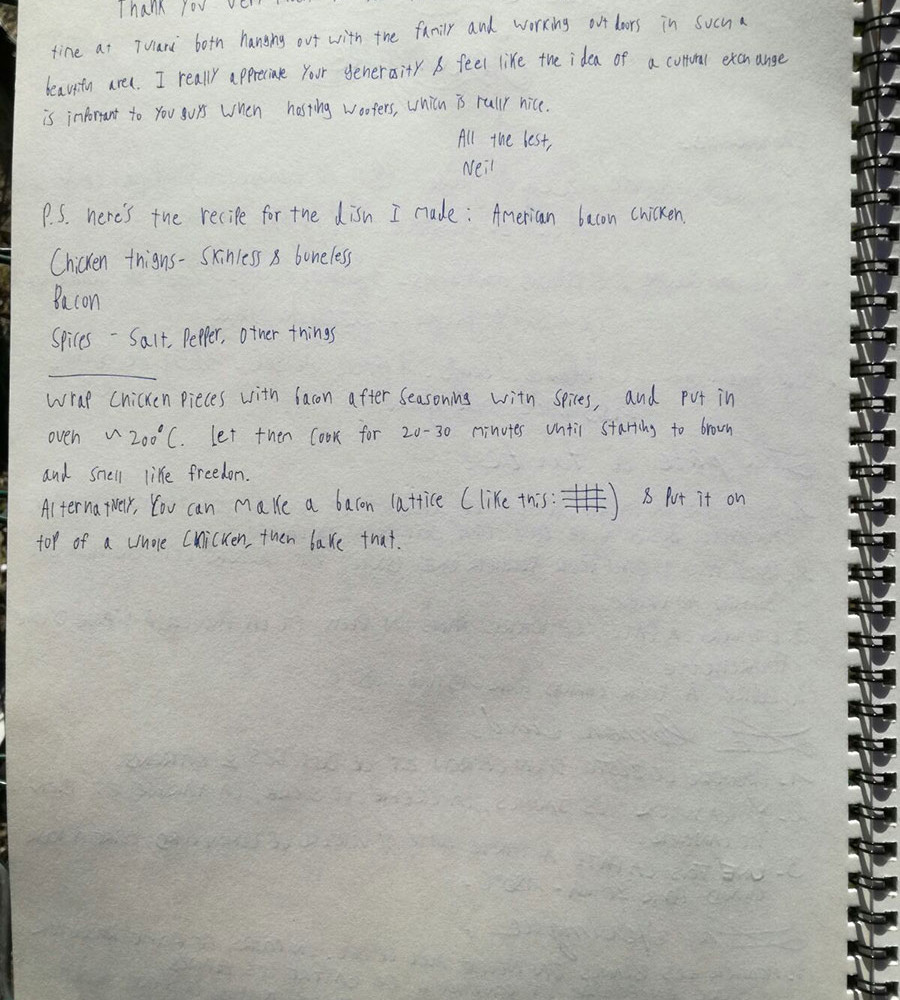 Thank you very
time at Tulani both hanging out with the family and working outdoors in such a
beautiful area. I really appreciate your generosity & feel like the idea of a cultural exchange
is important to you guys when hosting woofers, which is really nice.
All the best,
Neil
P.S. here's the recipe for the dish I made: American bacon chicken.
Chicken thighs - Skinless & boneless
Bacon
Spices - Salt, Pepper, other things
Wrap chicken pieces with bacon after seasoning with spices, and put in
oven ~200°C. Let them cook for 20-30 minutes until starting to brown
and smell like freedom.
Alternatively, you can make a bacon lattice (like this: ) & put it on
top of a whole chicken, then bake that.